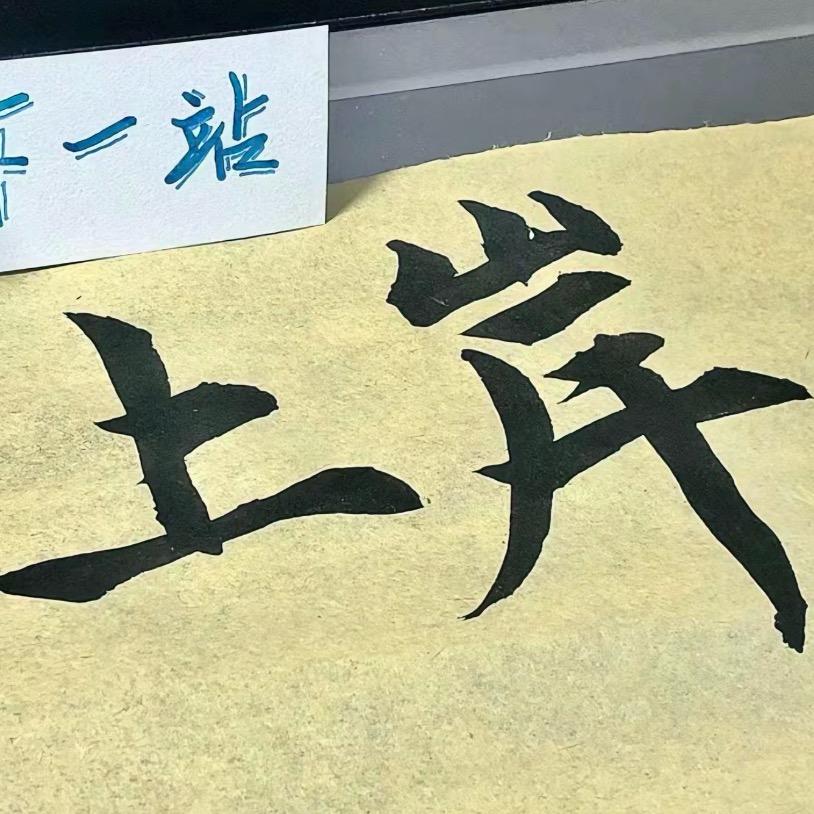 一站
上岸